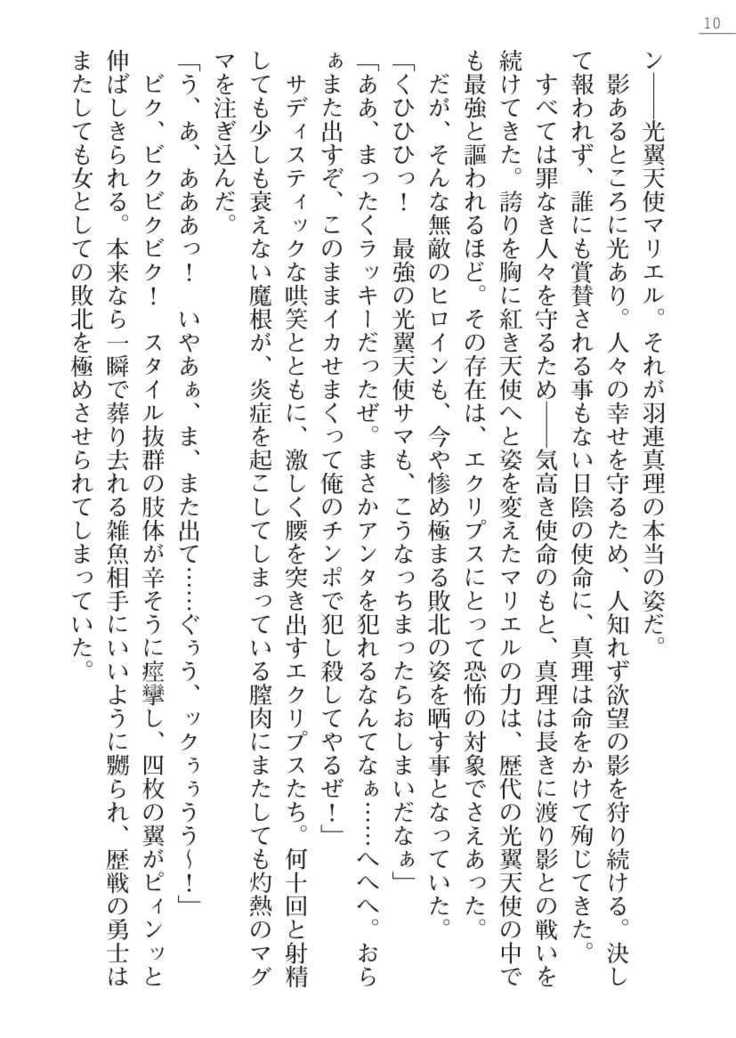 10
ン――光翼天使マリエル。それが羽連真理の本当の姿だ。
　影あるところに光あり。人々の幸せを守るため、人知れず欲望の影を狩り続ける。決し
て報われず、誰にも賞賛される事もない日陰の使命に、真理は命をかけて殉じてきた。
　すべては罪なき人々を守るため――気高き使命のもと、真理は長きに渡り影との戦いを
続けてきた。誇りを胸に紅き天使へと姿を変えたマリエルの力は、歴代の光翼天使の中で
も最強と謳われるほど。その存在は、エクリプスにとって恐怖の対象でさえあった。
　だが、そんな無敵のヒロインも、今や惨め極まる敗北の姿を晒す事となっていた。
「くひひひっ！　最強の光翼天使サマも、こうなっちまったらおしまいだなぁ」
「ああ、まったくラッキーだったぜ。まさかアンタを犯れるなんてなぁ……へへへ。おら
ぁまた出すぞ、このままイカせまくって俺のチンポで犯し殺してやるぜ！」
　サディスティックな哄笑とともに、激しく腰を突き出すエクリプスたち。何十回と射精
しても少しも衰えない魔根が、炎症を起こしてしまっている膣肉にまたしても灼熱のマグ
マを注ぎ込んだ。
「う、あ、あああっ！　いやあぁ、ま、また出て……ぐぅう、ックぅぅうう～！」
　ビク、ビクビクビク！　スタイル抜群の肢体が辛そうに痙攣し、四枚の翼がピィンッと
伸ばしきられる。本来なら一瞬で葬り去れる雑魚相手にいいように嬲られ、歴戦の勇士は
またしても女としての敗北を極めさせられてしまっていた。